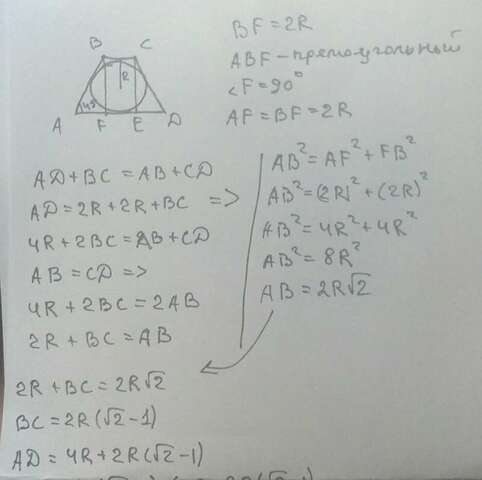 B C
R
45°
A F E D
BF = 2R
ABF - прямоугольный
∠F = 90°
AF = BF = 2R
AD + BC = AB + CD
AD = 2R + 2R + BC =>
4R + 2BC = AB + CD
AB = CD =>
4R + 2BC = 2AB
2R + BC = AB
AB² = AF² + FB²
AB² = (2R)² + (2R)²
AB² = 4R² + 4R²
AB² = 8R²
AB = 2R√2
2R + BC = 2R√2
BC = 2R(√2 - 1)
AD = 4R + 2R(√2 - 1)